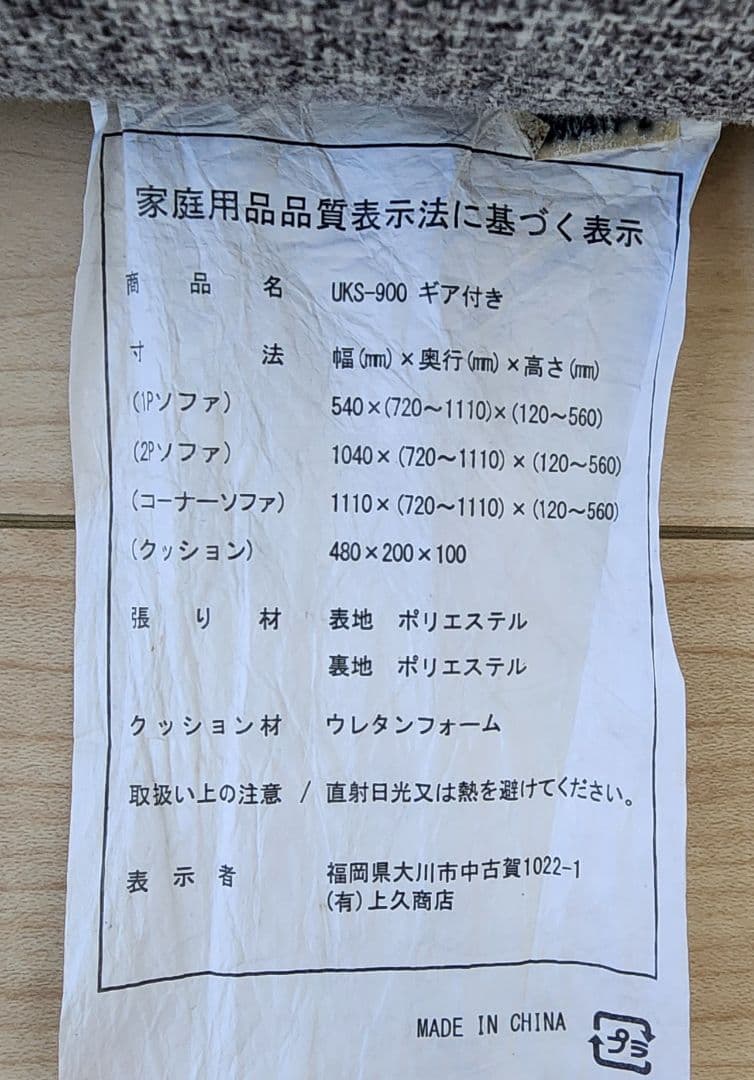 家庭用品品質表示法に基づく表示
商品名 UKS-900 ギア付き
寸法 幅(㎜)×奥行(㎜)×高さ(㎜)
(1Pソファ) 540×(720～1110)×(120～560)
(2Pソファ) 1040×(720～1110)×(120～560)
(コーナーソファ) 1110×(720～1110)×(120～560)
(クッション) 480×200×100
張り材 表地 ポリエステル
裏地 ポリエステル
クッション材 ウレタンフォーム
取扱い上の注意 / 直射日光又は熱を避けてください。
表示者 福岡県大川市中古賀1022-1
(有)上久商店
MADE IN CHINA
プラ